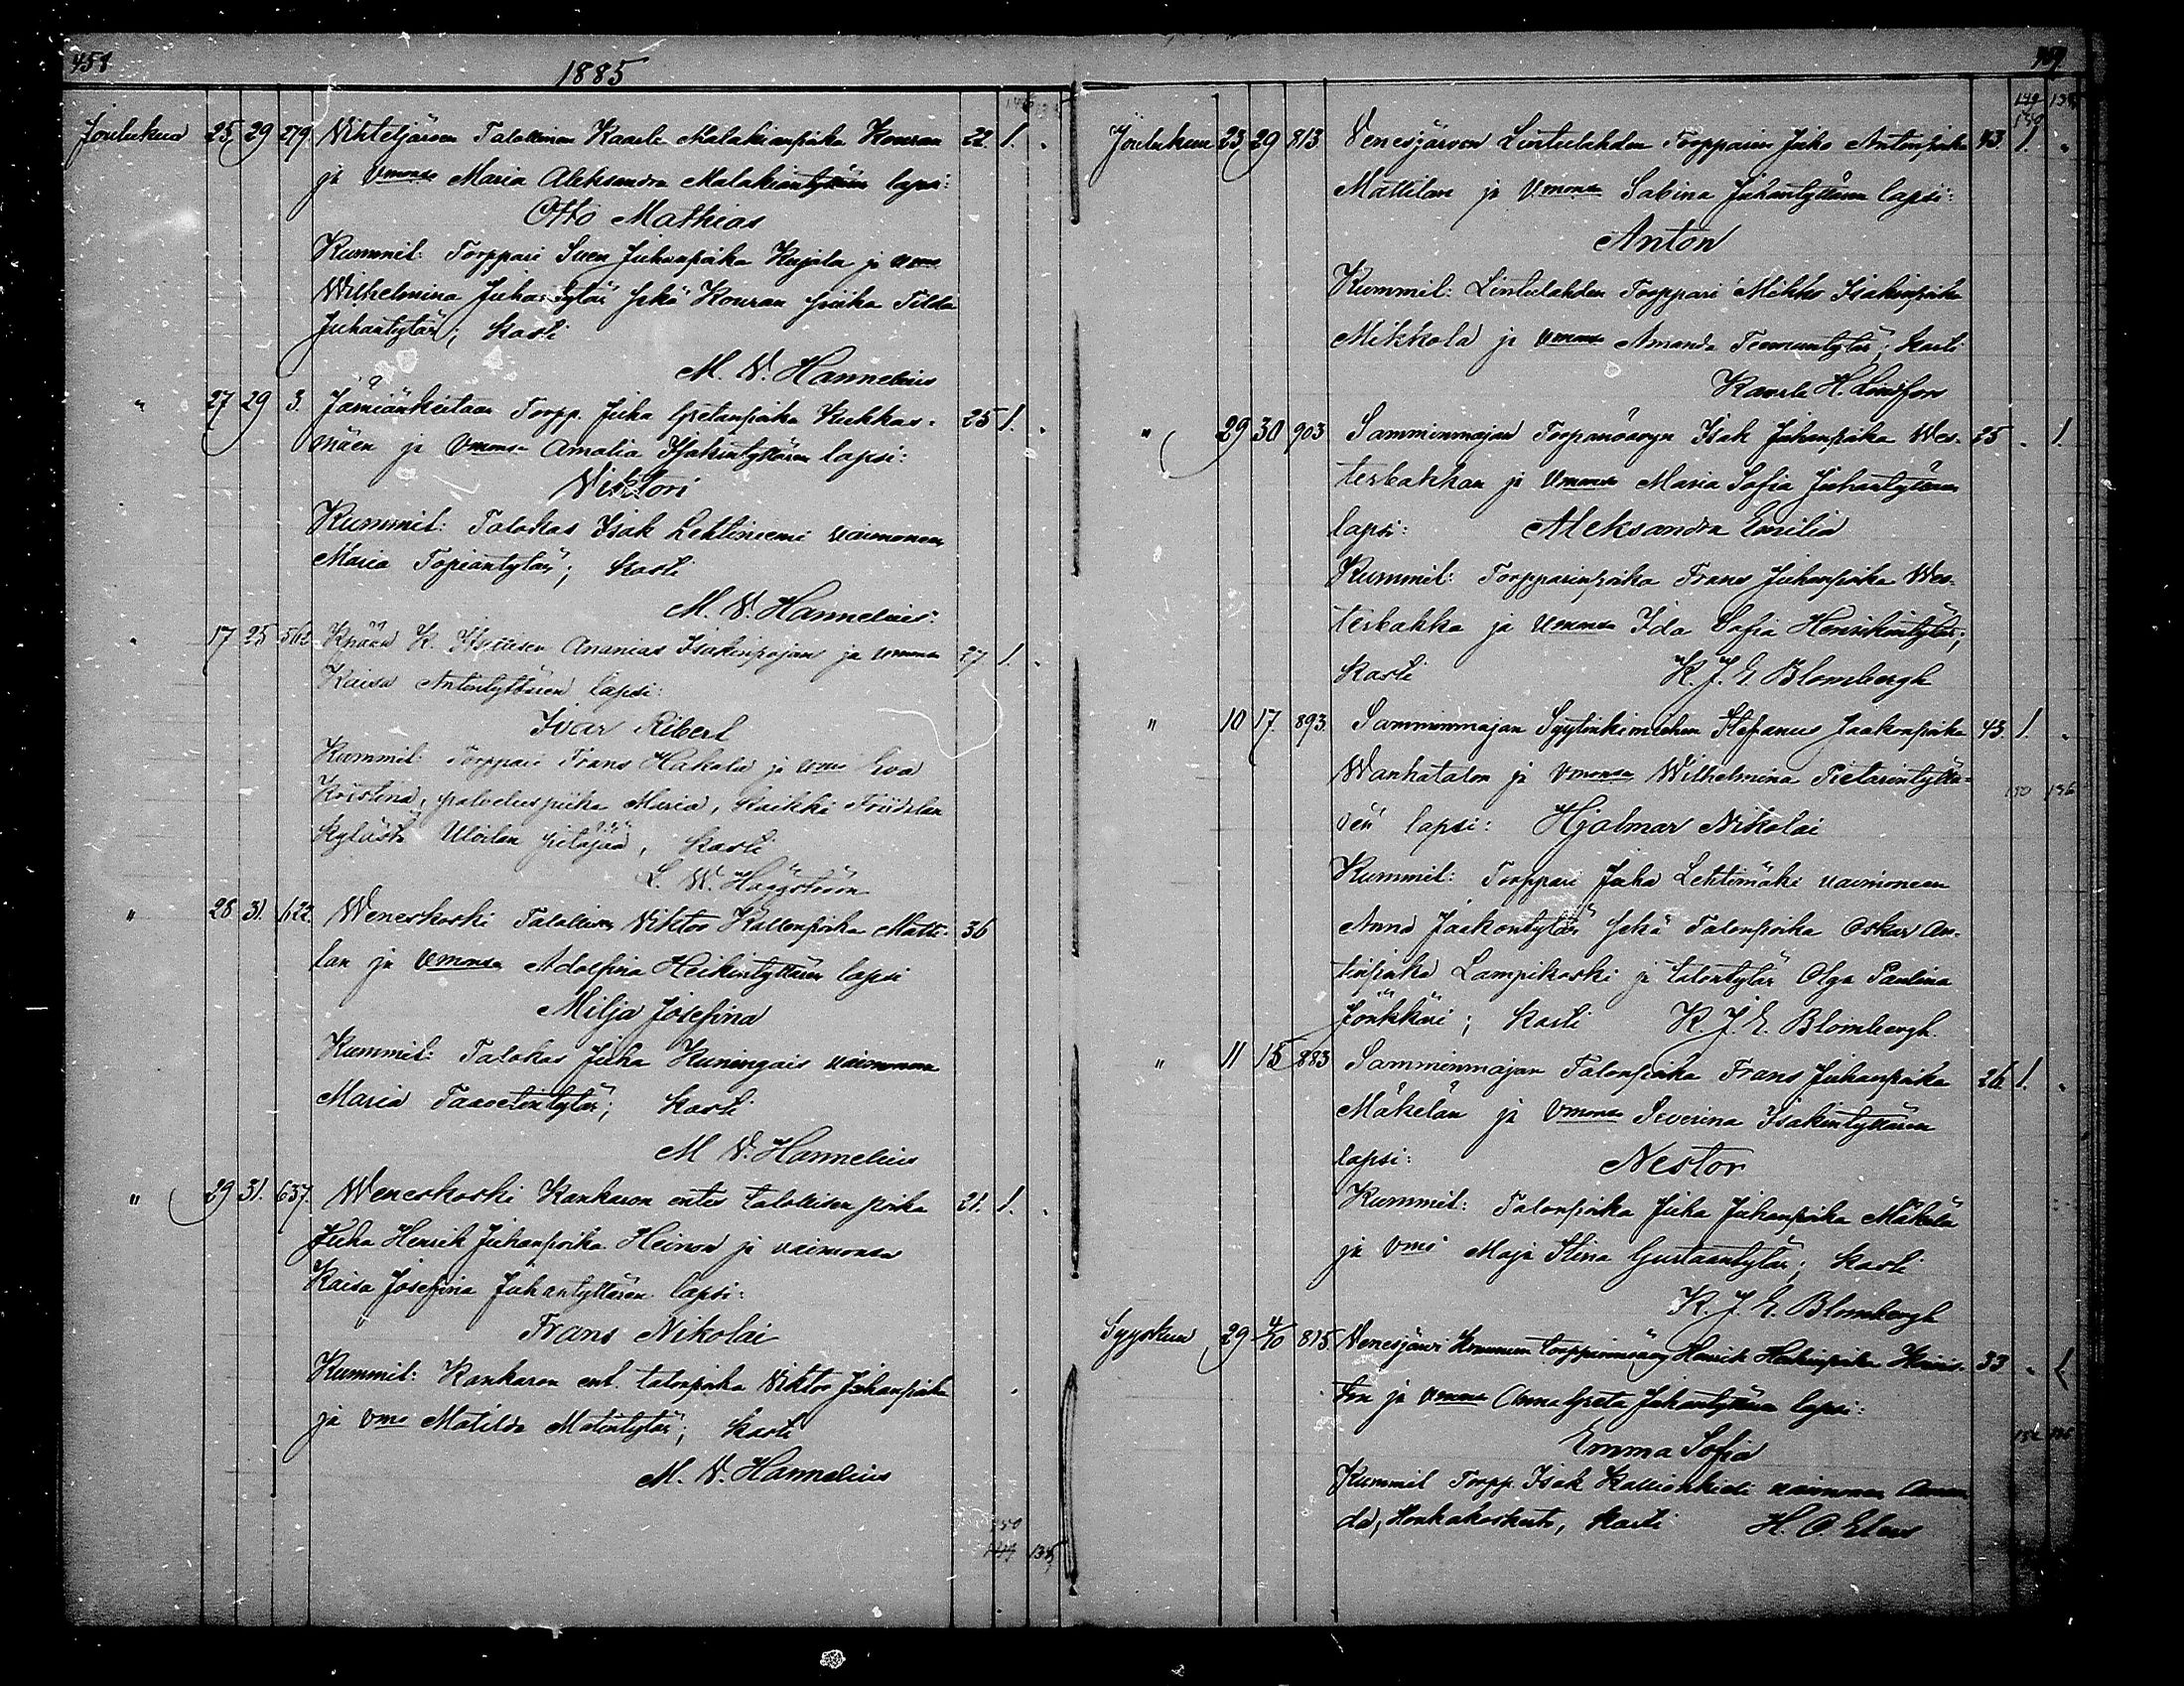 458
1885
Joulukuu 25 29 279 Vihteljärven Talollinen Kaarle Malakianpoika Kouran 22. 1. "
ja vmonsa Maria Aleksandra Malakiantyttären lapsi:
Otto Mathias
Kummit: Torppari Sven Juhanpoika Kujala ja vmo
Wilhelmina Juhantytär sekä Kouran piika Tilda
Juhantytär; kasti
M. V. Hannelius
" 27 29 3. Jämiänkeitaan Torpp. Juha Gretanpoika Kukkas- 25 1. "
mäen ja vmonsa Amalia Isakintyttären lapsi:
Viktori
Kummit: Talokas Isak Lehtiniemi vaimoneen
Maria Topiantytär; kasti
M. V. Hannelius.
" 17 25 562 Ananias Isakinpojan ja vmonsa 27 1. "
Kaisa Antintyttären lapsi:
Ivar Ribert
Kummit: Torppari Frans Hakala ja vmo Eva
Kristina, palveluspiika Maria, kaikki Friidilän
kylästä Ulvilan pitäjää, kasti
L. W. Häggström
" 28 31. 622. Weneskoski Talollisen Viktor Kallenpoika Matti- 36
lan ja vmonsa Adolfina Heikintyttären lapsi
Milja Josefina
Kummit: Talokas Juha Kuningais vaimoneen
Maria Taavetintytär; kasti
M V. Hannelius
" 29 31. 637. Weneskoski Kankaron entis talollisen poika 21. 1. "
Juha Henrik Juhanpoika Heinon ja vaimonsa
Kaisa Josefina Juhantyttären lapsi:
Frans Nikolai
Kummit: Kankaron ent. talonpoika Viktor Juhanpoika
ja vmo Matilda Matintytär; kasti
M. V. Hannelius
150
149 135
149 135
150
Joulukuu 23 29 813. Venesjärven Lintulahden Torpparin Juho Antonpoika 43. 1. "
Mattilan ja Vmonsa Sabina Juhantyttären lapsi:
Anton
Kummit: Lintulahden Torppari Mikko Isakinpoika
Mikkola ja vmonsa Amanda Teemuntytär; kasti
Kaarle H. Lindfors
" 29 30 903 Samminmajan Isak Juhanpoika Wes- 25 " 1.
terbakkan ja Vmonsa Maria Sofia Juhantyttären
lapsi: Aleksandra Emilia
Kummit: Torpparinpoika Frans Juhanpoika Wes-
terbakka ja vmonsa Ida Sofia Henrikintytär;
kasti K. J. E. Blombergh
" 10 17. 893. Samminmajan Syytinkimiehen Stefanus Jaakonpoika 43. 1. "
Wanhatalon ja Vmonsa Wilhelmina Pietarintyttä-
150 136
ren lapsi: Hjalmar Nikolai
Kummit: Torppari Juha Lehtimäki vaimoneen
Anna Jaakontytär sekä Talonpoika Oskar An-
tinpoika Lampikoski ja talontytär Olga Paulina
Jönkkäri; kasti K. J. E. Blombergh.
" 11 15 883 Samminmajan Talonpoika Frans Juhanpoika 26 1. "
Mäkelän ja Vmonsa Severina Isakintyttären
lapsi: Nestor
Kummit: Talonpoika Juha Juhanpoika Mäkelä
ja vmo Maja Stina Gustaantytär; kasti
K. J. E. Blombergh
Syyskuu 29 4/10 815. Venesjärvi Henrik Heikinpoika 33 " 1
ja vmonsa Anna Greta Juhantyttären lapsi:
Emma Sofia
Kummit Torpp. Isak Kalliokieli vaimoneen Aman
da, Honkakoskelta, kasti